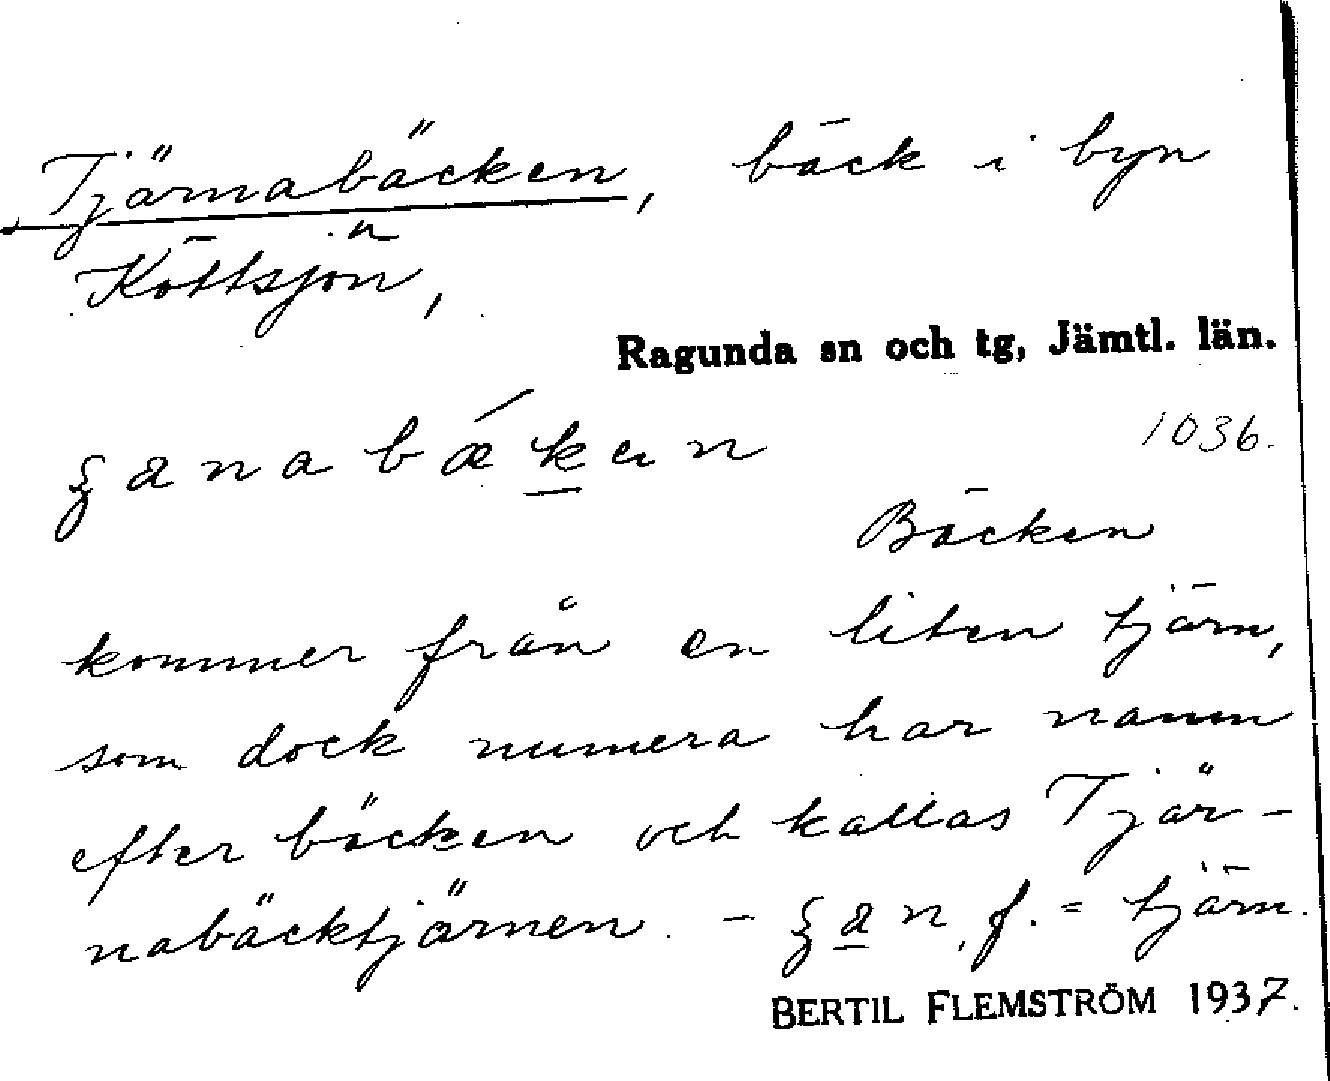 Tjärnabäcken, bäck i byn
Köttsjön,
Ragunda sn och tg, Jämtl. län.
1036.
Bäcken
kommer från en liten tjärn,
som dock numera har namn
efter bäcken och kallas Tjär-
nabäcktjärnen. - f. = tjärn.
BERTIL FLEMSTRÖM 1937.